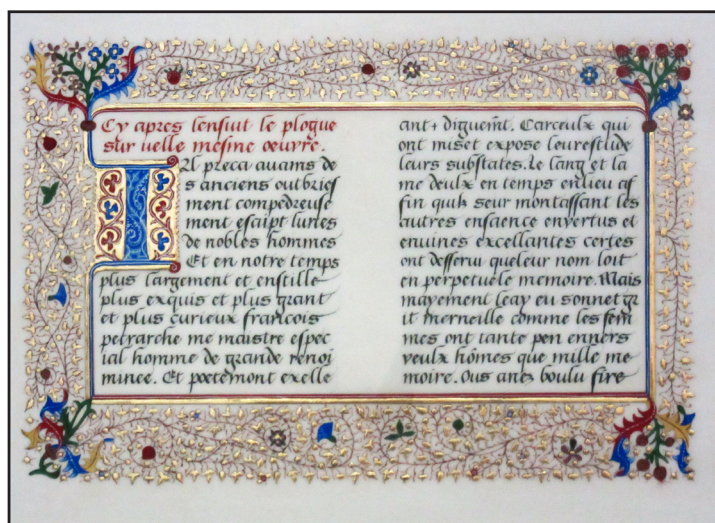 Cy apres lensuit le plogue
sur uelle mesme oeuvre.
Il preca auams de
s anciens outbries
ment compedreuse
ment escipt liures
de nobles hommes
Et en notre temps
plus largement et enstille
plus exquis et plus grant
et plus curieux francois
petrarche me maistre espec
ial homme de grande renoi
minee. Et poetemont exelle
ant+ diguemt. Carceulx qui
ont miset expose leurestlide
leurs substates. Le lang et la
me deulx en temps enlieu af
fin quilz seur montassant les
autres ensaence envertus et
enuines excellantes certes
ont desserui queleur nom loit
en perpetuele memoire. Mais
mayement leay eu sonnet gr
it merneille comme les fem
mes ont tante pen enners
veulx hômes que mille me
moire. Ous anez boulu fire